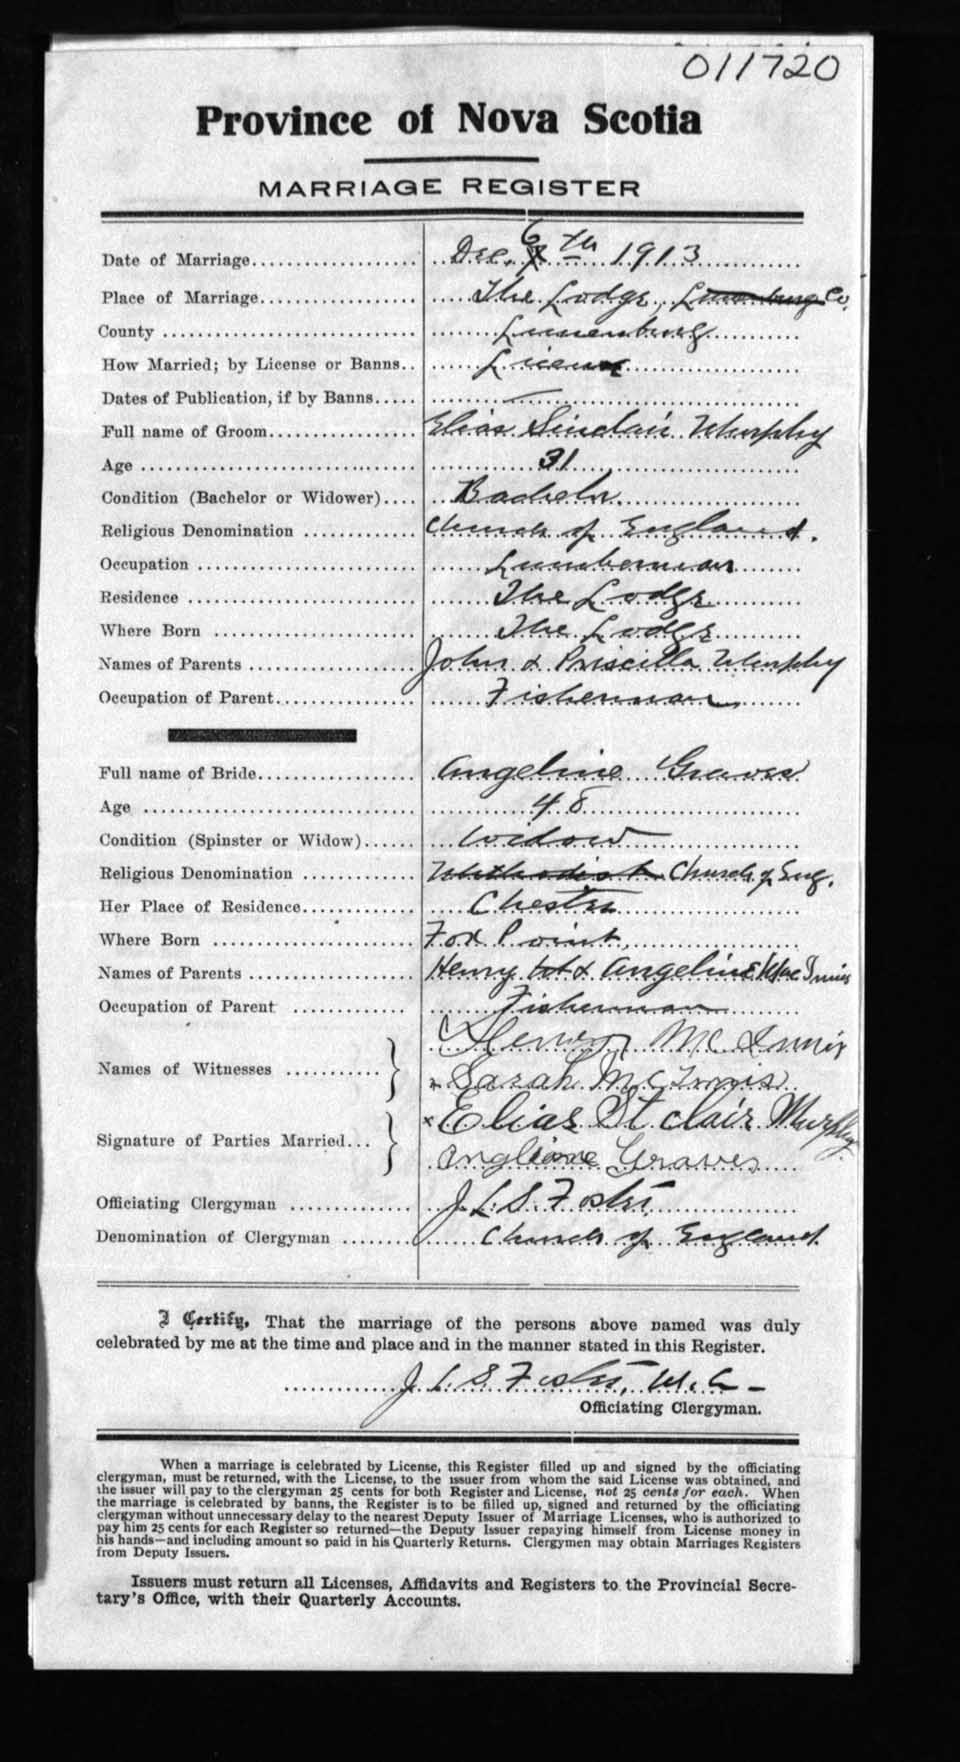 011720
Province of Nova Scotia
MARRIAGE REGISTER
Date of Marriage.................... Dec. 6th 1913
Place of Marriage.................... The Lodge, Lunenburg Co.
County .................... Lunenburg
How Married; by License or Banns.. License
Dates of Publication, if by Banns..... —
Full name of Groom.................... Elias Sinclair Murphy
Age .................... 31
Condition (Bachelor or Widower).... Bachelor
Religious Denomination ............. Church of England.
Occupation .................... Lumberman
Residence .................... The Lodge
Where Born .................... The Lodge
Names of Parents .................... John & Priscilla Murphy
Occupation of Parent................. Fisherman
Full name of Bride.................... Angeline Graves
Age .................... 48
Condition (Spinster or Widow)...... Widow
Religious Denomination ............. Methodist Church of Eng.
Her Place of Residence............. Chester
Where Born .................... Fox Point
Names of Parents .................... Henry & Angeline Mac Innis
Occupation of Parent ............. Fisherman
Names of Witnesses ........... Henry Mc Innis
x Sarah McInnis
Signature of Parties Married... x Elias St clair Murphy
Anglione Graves
Officiating Clergyman ............. J. L. S. Foster
Denomination of Clergyman ........ Church of England
I Certify, That the marriage of the persons above named was duly
celebrated by me at the time and place and in the manner stated in this Register.
J L S Foster, M.A.
Officiating Clergyman.
When a marriage is celebrated by License, this Register filled up and signed by the officiating
clergyman, must be returned, with the License, to the issuer from whom the said License was obtained, and
the issuer will pay to the clergyman 25 cents for both Register and License, not 25 cents for each. When
the marriage is celebrated by banns, the Register is to be filled up, signed and returned by the officiating
clergyman without unnecessary delay to the nearest Deputy Issuer of Marriage Licenses, who is authorized to
pay him 25 cents for each Register so returned—the Deputy Issuer repaying himself from License money in
his hands—and including amount so paid in his Quarterly Returns. Clergymen may obtain Marriages Registers
from Deputy Issuers.
Issuers must return all Licenses, Affidavits and Registers to the Provincial Secre-
tary's Office, with their Quarterly Accounts.